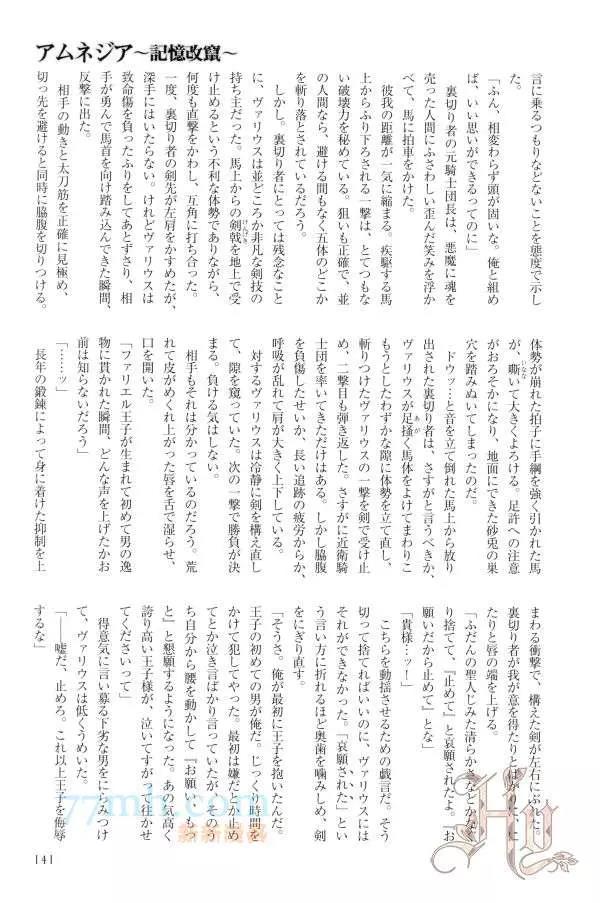 アムネジア〜記憶改竄〜
言に乗るつもりなどないことを態度で示し
た。
「ふん、相変わらず頭が固いな。俺と組め
ば、いい思いができるってのに」
裏切り者の元騎士団長は、悪魔に魂を
売った人間にふさわしい歪んだ笑みを浮か
べて、馬に拍車をかけた。
彼我の距離が一気に縮まる。疾駆する馬
上からふり下ろされる一撃は、とてつもな
い破壊力を秘めている。狙いも正確で、並
の人間なら、避ける間もなく五体のどこか
を斬り落とされているだろう。
しかし。裏切り者にとっては残念なこと
に、ヴァリウスは並どころか非凡な剣技の
持ち主だった。馬上からの剣戟を地上で受
け止めるという不利な体勢でありながら、
何度も直撃をかわし、互角に打ち合った。
一度、裏切り者の剣先が左肩をかすめたが、
深手にはいたらない。けれどヴァリウスは
致命傷を負ったふりをしてあとずさり、相
手が勇んで馬首を向け踏み込んできた瞬間、
反撃に出た。
相手の動きと太刀筋を正確に見極め、
切っ先を避けると同時に脇腹を切りつける。
体勢が崩れた拍子に手綱を強く引かれた馬
が、嘶いて大きくよろける。足許への注意
がおろそかになり、地面にできた砂兎の巣
穴を踏みぬいてしまったのだ。
ドウッ…と音を立て倒れた馬上から放り
出された裏切り者は、さすがと言うべきか、
ヴァリウスが足掻く馬体をよけてまわりこ
もうとしたわずかな隙に体勢を立て直し、
斬りつけたヴァリウスの一撃を剣で受け止
め、二撃目も弾き返した。さすがに近衛騎
士団を率いてきただけはある。しかし脇腹
を負傷したせいか、長い追跡の疲労からか、
呼吸が乱れて肩が大きく上下している。
対するヴァリウスは冷静に剣を構え直し
て、隙を窺っていた。次の一撃で勝負が決
まる。負ける気はしない。
相手もそれは分かっているのだろう。荒
れて皮がめくれ上がった唇を舌で湿らせ、
口を開いた。
「ファリエル王子が生まれて初めて男の逸
物に貫かれた瞬間、どんな声を上げたかお
前は知らないだろう」
「……ッ」
長年の鍛錬によって身に着けた抑制を上
まわる衝撃で、構えた剣が左右にぶれた。
裏切り者が我が意を得たりとばかりに、に
たりと唇の端を上げる。
「ふだんの聖人じみた清らかさなどかなぐ
り捨てて、『止めて』と哀願されたよ。『お
願いだから止めて』とな」
「貴様…ッ！」
こちらを動揺させるための戯言だ。そう
切って捨てればいいのに、ヴァリウスには
それができなかった。「哀願された」とい
う言い方に折れるほど奥歯を噛みしめ、剣
をにぎり直す。
「そうさ。俺が最初に王子を抱いたんだ。
王子の初めての男が俺だ。じっくり時間を
かけて犯してやった。最初は嫌だとか止め
てとか泣き言ばかり言っていたが、そのう
ち自分から腰を動かして『お願い、もっ
と』と懇願するようになった。あの気高く
誇り高い王子様が、泣いてすがって往かせ
てくださいって」
得意気に言い募る下劣な男をにらみつけ
て、ヴァリウスは低くうめいた。
「――嘘だ、止めろ。これ以上王子を侮辱
するな」
141
77mh.com
Hy